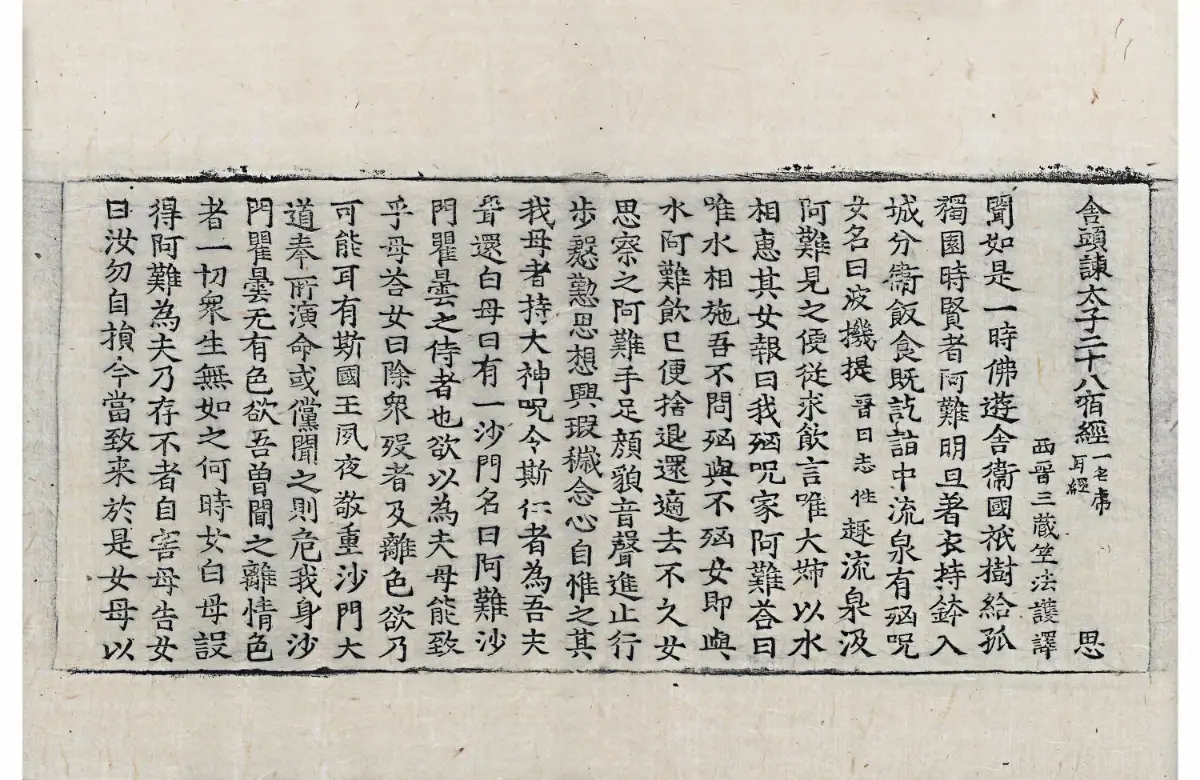 舍頭諫太子二十八宿經一名虎耳經 思
西晉三藏竺法護譯
聞如是一時佛遊舍衞國祇樹給孤
獨園時賢者阿難明旦著衣持鉢入
城分衞飯食既訖詣中流泉有㓙呪
女名曰波機提晉日志性趣流泉汲
阿難見之便從求飲言唯大姉以水
相惠其女報曰我㓙呪家阿難荅曰
唯水相施吾不問㓙與不㓙女即與
水阿難飲已便捨退還適去不久女
思察之阿難手足顔貌音聲進止行
步慇懃思想興瑕穢念心自惟之其
我母者持大神呪令斯仁者為吾夫
聟還白母曰有一沙門名曰阿難沙
門瞿曇之侍者也欲以為夫母能致
乎母荅女曰除衆殁者及離色欲乃
可能耳有斯國王夙夜敬重沙門大
道奉所演命或儻聞之則危我身沙
門瞿曇无有色欲吾曽聞之離情色
者一切衆生無如之何時女白母設
得阿難為夫乃存不者自害母告女
曰汝勿自損今當致来於是女母以